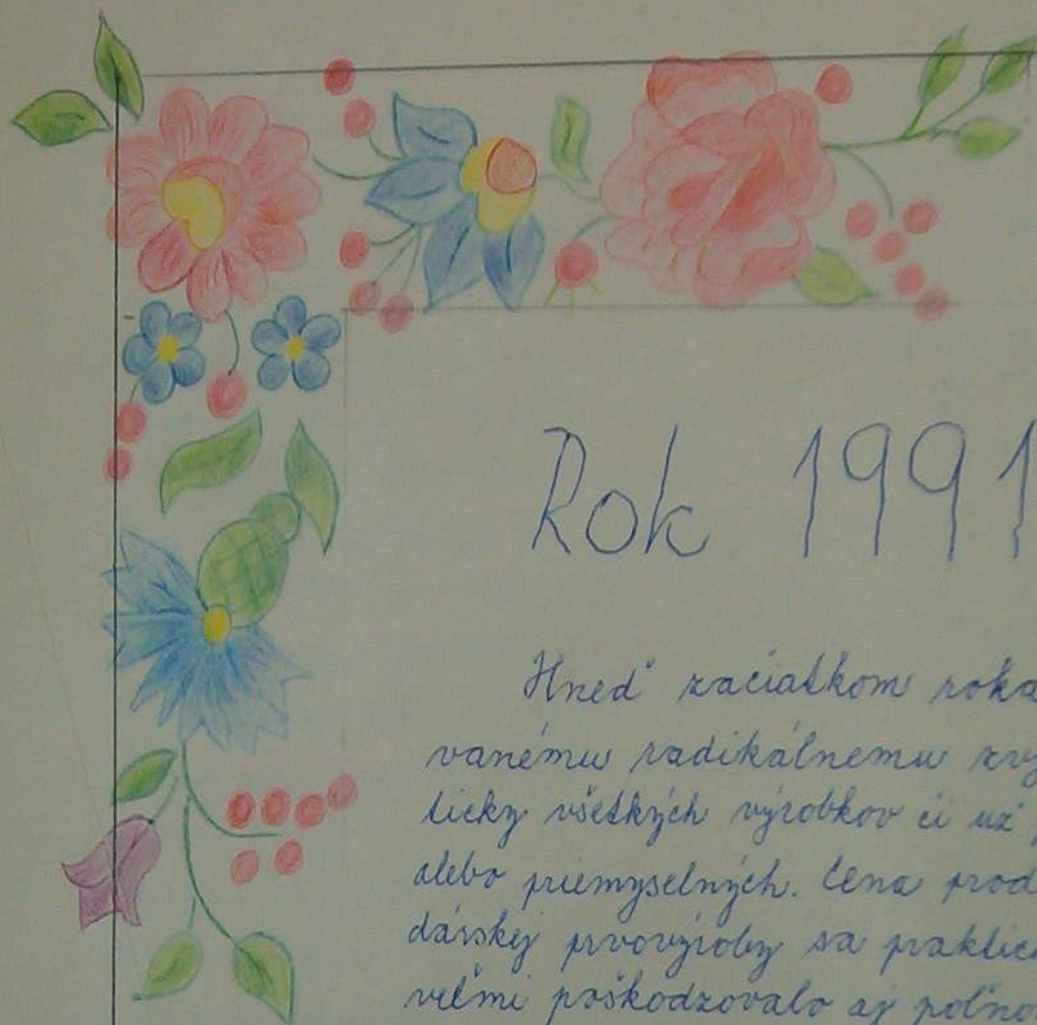 Rok 1991
Hneď začiatkom roka
vanému radikálnemu zvý
ticky všetkých výrobkov či už
alebo priemyselných. Cena prod
dárskej prvovýroby sa praktic
veľmi poškodzovalo aj poľno